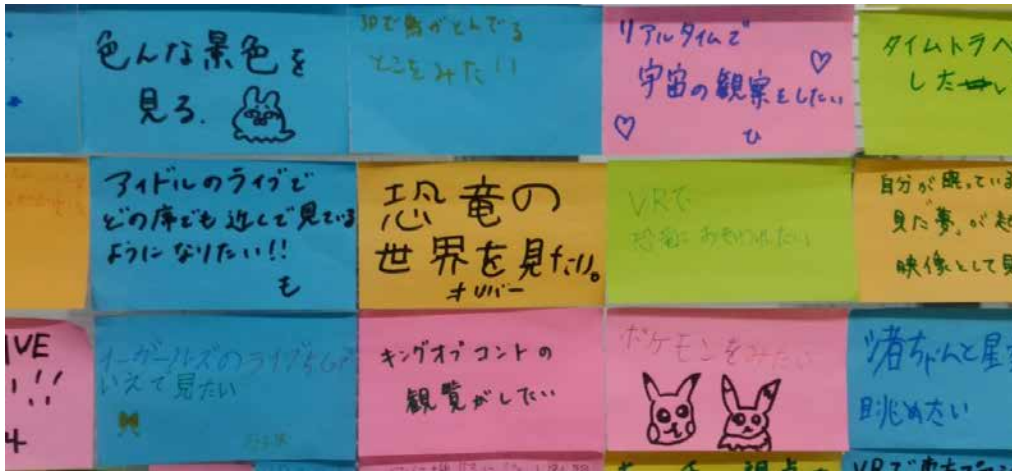 色んな景色を
見る.
3Dで鳥がとんでる
とこをみたい
リアルタイムで
宇宙の観察をしたい
ひ
タイムトラベ
した
アイドルのライブで
どの席でも近くで見ている
ようになりたい!!
も
恐竜の
世界を見たい。
オリバー
VRで
恐竜におわれたい
自分が眠っている
見た夢が
映像として見
IVE
!!
4
イーガールズのライブ
いえで見たい
キングオブコントの
観覧がしたい
ポケモンをみたい
者ちゃんと星
眺めたい
視点
VRで